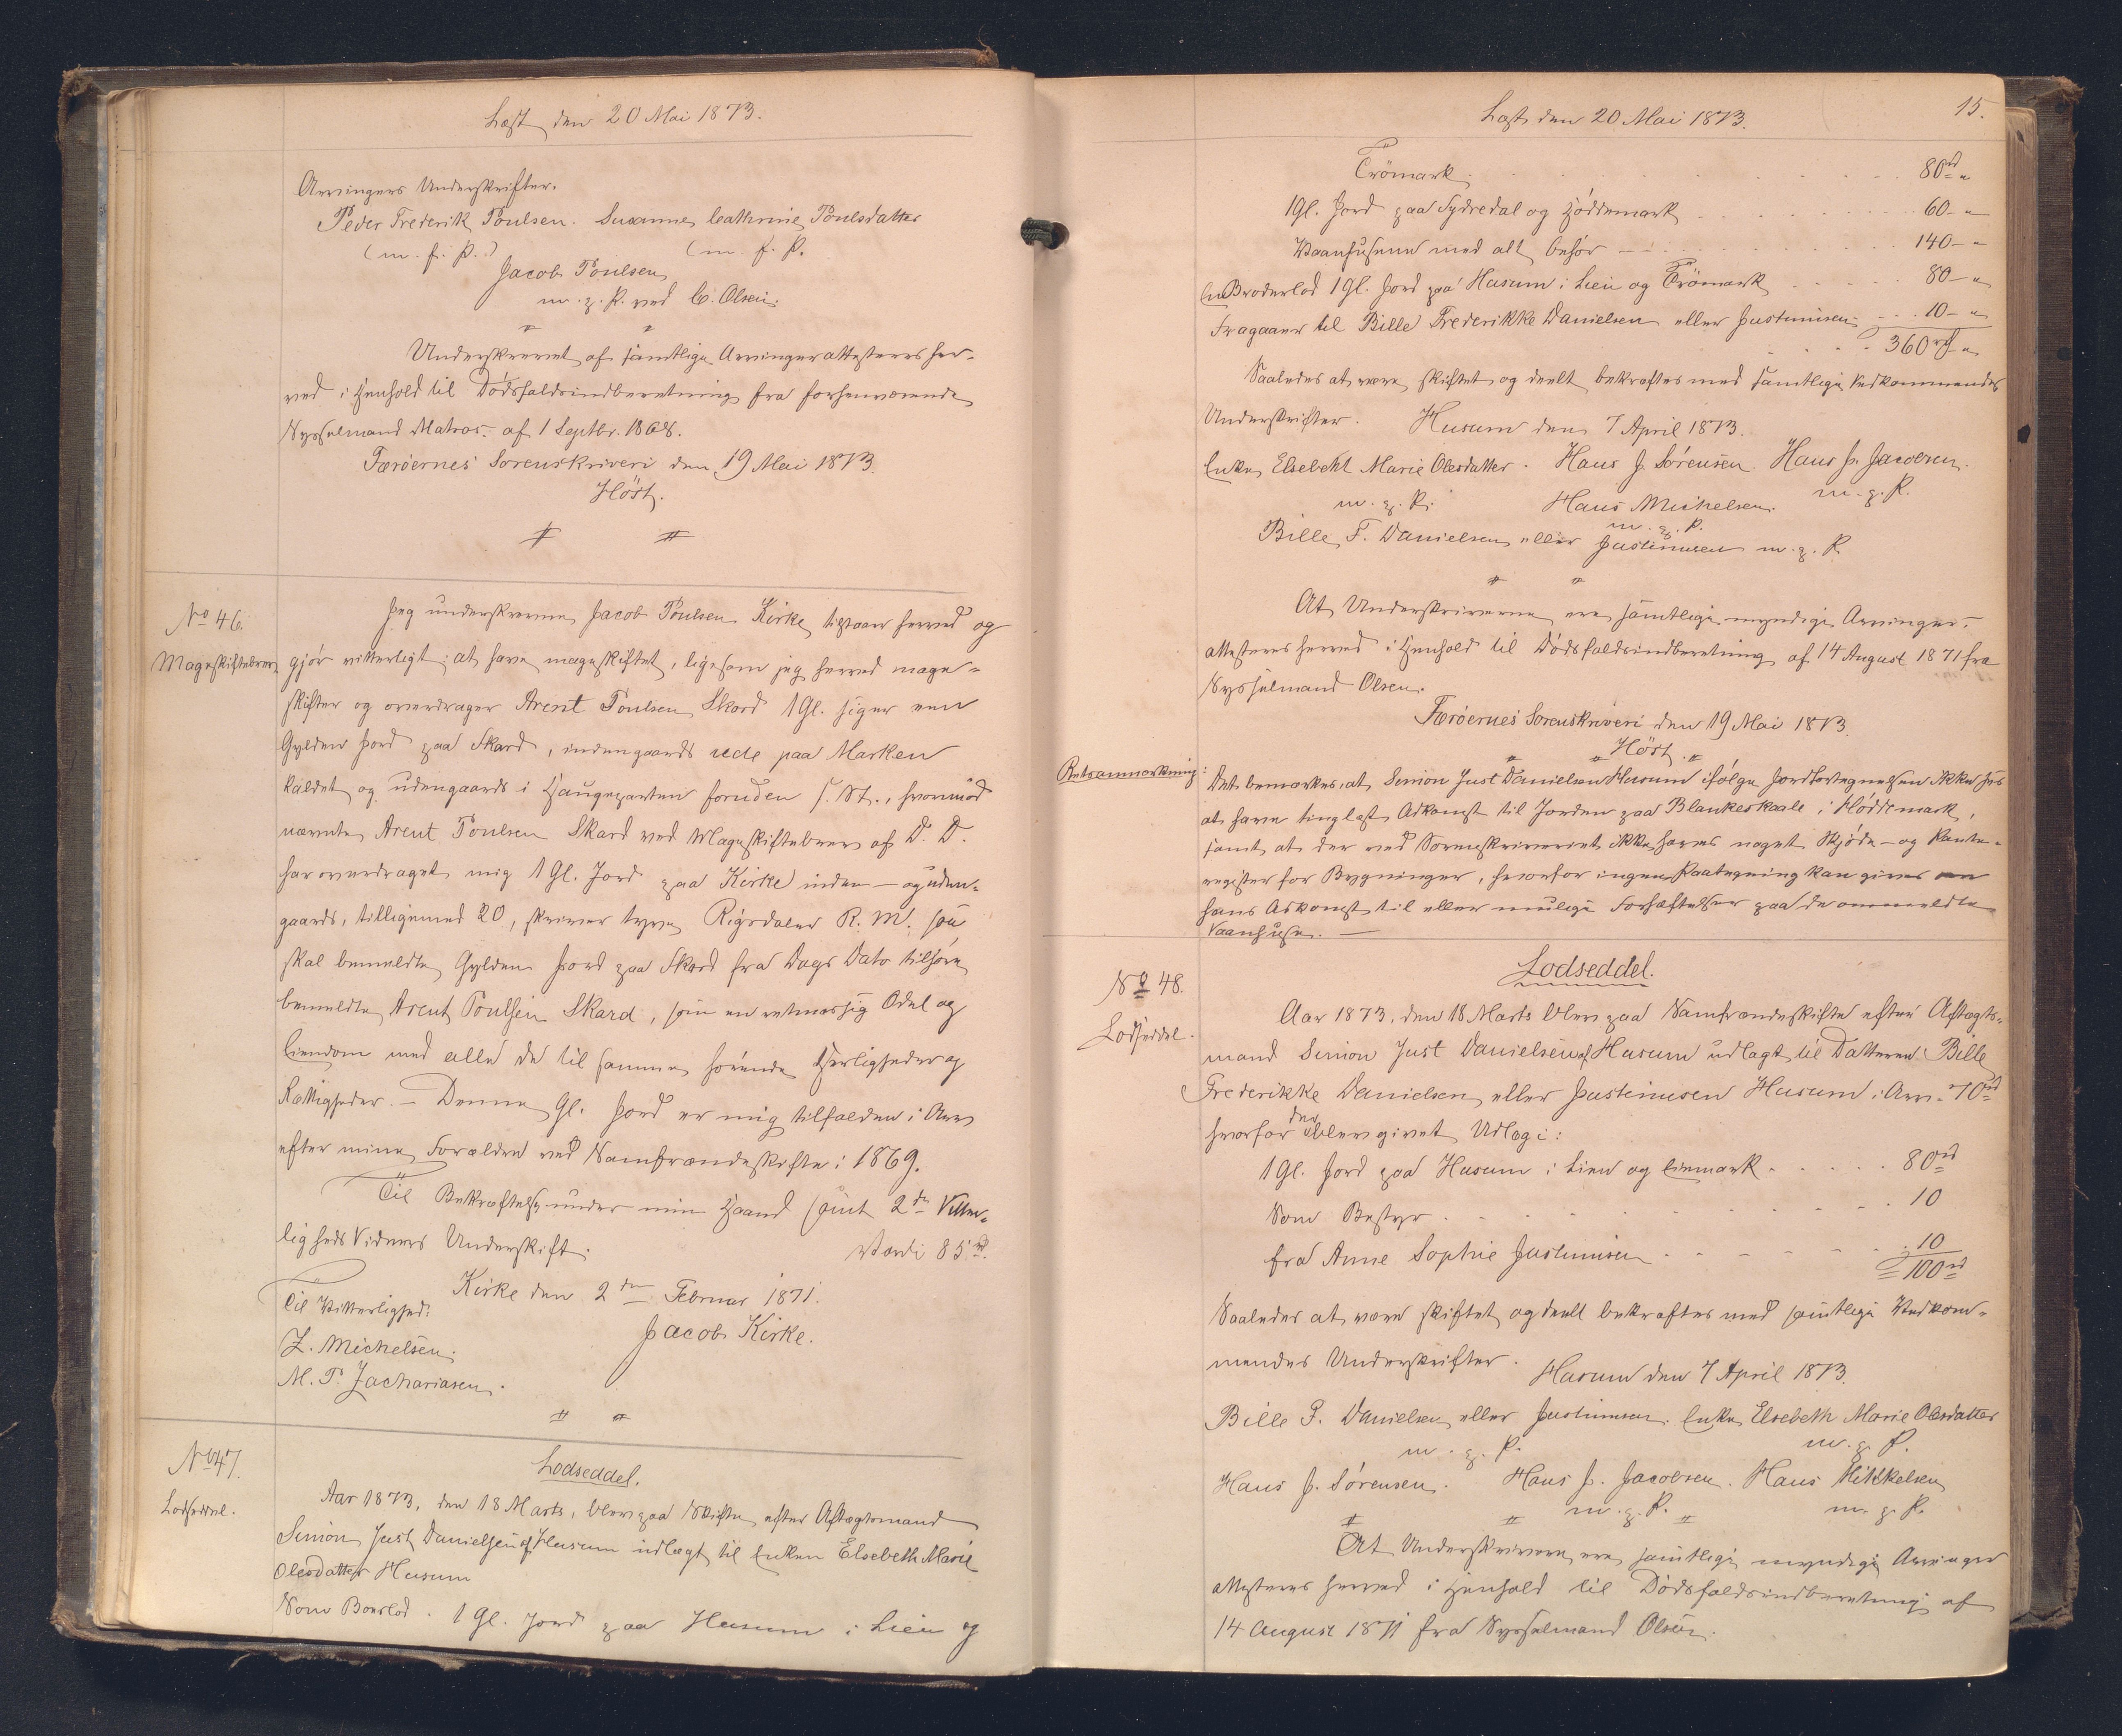 Læst den 20 Mai 1873.
Arvingers Underskrifter.
Peder Frederik Poulsen. Susanne Cathrine Poulsdatter
(m. f. P.) (m. f. P.
Jacob Poulsen
m. p. P. ved C. Olsen.
Underskrevet af samtlige Arvinger attesteres her-
ved i Henhold til Dödsfaldsindberetning fra forhenværende
Sysselmand Matras. af 1 Septbr. 1868.
Færöernes Sorenskriveri den 19 Mai 1873.
Höst.
No 46.
Mageskiftebrev
Jeg underskrevne Jacob Poulsen Kirke tilstaaer herved og
gjör vitterligt; at have mageskiftet, ligesom jeg herved mage-
skifter og overdrager Arent Poulsen Skard 1 Gl. siger een
Gylden Jord paa Skard, indengaards uede paa Marken
kaldet og udengaards i Haugeparten foruden S. St., hvorimod
nævnte Arent Poulsen Skard ved Mageskiftebrev af D. D.
har overdraget mig 1 Gl. Jord paa Kirke inden- og uden-
gaards, tilligemed 20, skriver tyve Rigsdaler R. M. saa
skal bemeldte Gylden Jord paa Skard fra Dags Dato tilhöre
bemeldte Arent Poulsen Skard, som en retmæssig Odel og
Eiendom med alle de til samme hörende Herligheder og
Rettigheder. – Denne Gl. Jord er mig tilfalden i Arv
efter mine Forældre ved Samfrændeskifte i 1869.
Til Bekræftelse under min Haand samt 2de Vitter-
ligheds Vidners Underskift.
Værdi 85 rd.
Kirke den 2den Februar 1871.
Til Vitterlighed:
Jacob Kirke.
Z. Michelsen.
M. P. Zachariasen.
No 47.
Lodseddel.
Lodseddel.
Aar 1873, den 18 Marts, blev paa Skifte efter Aftægtsmand
Simon Just Danielsen af Husum udlagt til Enken Elsebeth Marie
Olesdatter Husum
Som Boeslod. 1 Gl. Jord paa Husum i Lien og
15.
Læst den 20 Mai 1873.
Trömark 80 rd "
1 Gl. Jord paa Sydredal og Höddemark 60 – "
Vaanhusene med alt behör 140 – "
En Broderlod 1 Gl. Jord paa Husum i Lien og Trömark 80 – "
Fragaaer til Bille Frederikke Danielsen eller Justinusen 10 – "
360 rd "
Saaledes at være skiftet og deelt bekræftes med samtlige Vedkommendes
Underskrifter. Husum den 7 April 1873.
Enke Elsebeht Marie Olesdatter. Hans J. Sörensen. Hans J. Jacobsen.
m. p. P. Hans Michelsen. m. p. P.
m. p. P.
Bille F. Danielsen eller Justinusen m. p. P.
At Underskriverne ere samtlige myndige Arvinger.
attesteres herved i Henhold til Dödsfaldsindberetning af 14 August 1871 fra
Sysselmand Olsen.
Færöernes Sorenskriveri den 19 Mai 1873.
Höst.
Retsanmærkning:
Det bemærkes, at Simon Just Danielsen Husum ifölge Jordfortegnelsen ikke sees
at have tinglæst Adkomst til Jorden paa Blankeskaale i Höddemark,
samt at der ved Sorenskriveriet ikke haves noget Skjöde- og Pante-
register for Bygninger, hvorfor ingen Paategning kan gives om
hans Adkomst til eller mulige Forhæftelser paa de ommeldte
Vaanhuse. –
No 48.
Lodseddel.
Lodseddel.
Aar 1873, den 18 Marts blev paa Samfrændeskifte efter Aftægts-
mand Simon Just Danielsen af Husum udlagt til Datteren Bille
Frederikke Danielsen eller Justinusen Husum i Arv 70 rd
hvorfor der blev givet Udlæg i:
1 Gl. Jord paa Husum i Lien og Eiemark 80 rd
Som Bestyr 10
fra Anne Sophie Justinusen 10
= 100 rd
Saaledes at være skiftet og deelt bekræftes med samtlige Vedkom-
mendes Underskrifter.
Husum den 7 April 1873.
Bille F. Danielsen eller Justinusen. Enke Elsebeth Marie Olesdatter
m. p. P. m. p. P.
Hans J. Sörensen. Hans J. Jacobsen. Hans Mikkelsen
m. p. P. m. p. P.
At Underskriverne ere samtlige myndige Arvinger
attesteres herved i Henhold til Dödsfaldsindberetning af
14 August 1871 fra Sysselmand Olsen.